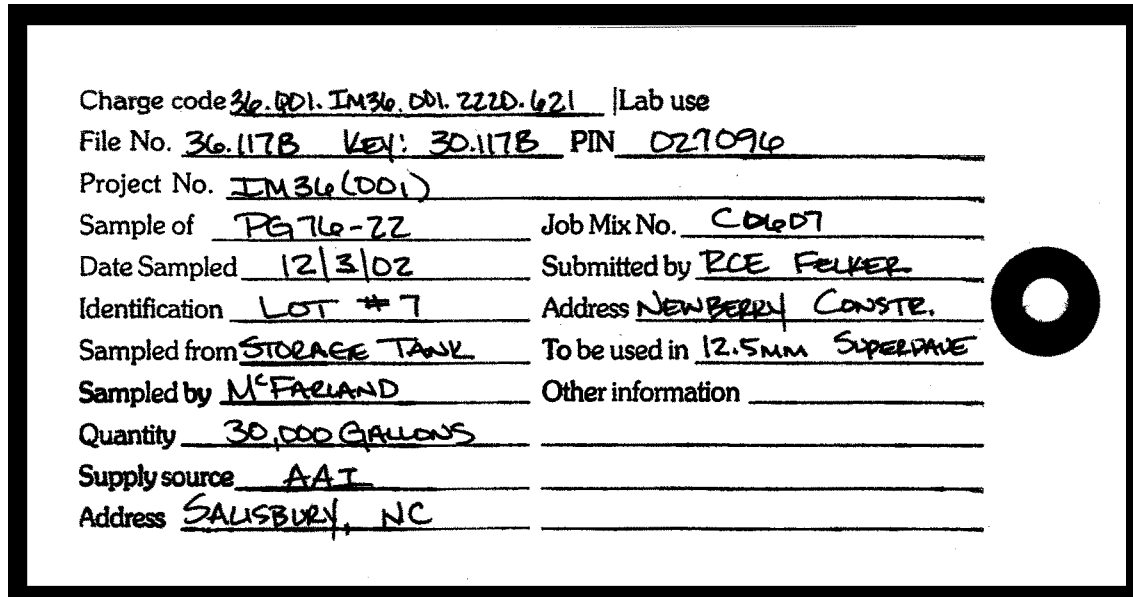 Charge code 36.001.IM36.001.222D.621 |Lab use
File No. 36.117B KEY: 30.117B PIN 027096
Project No. IM36(001)
Sample of PG76-22 Job Mix No. C0607
Date Sampled 12/3/02 Submitted by RCE FELKER
Identification LOT #7 Address NEWBERRY CONSTR.
Sampled from STORAGE TANK To be used in 12.5MM SUPERPAVE
Sampled by McFARLAND Other information
Quantity 30,000 GALLONS
Supply source AAI
Address SALISBURY, NC